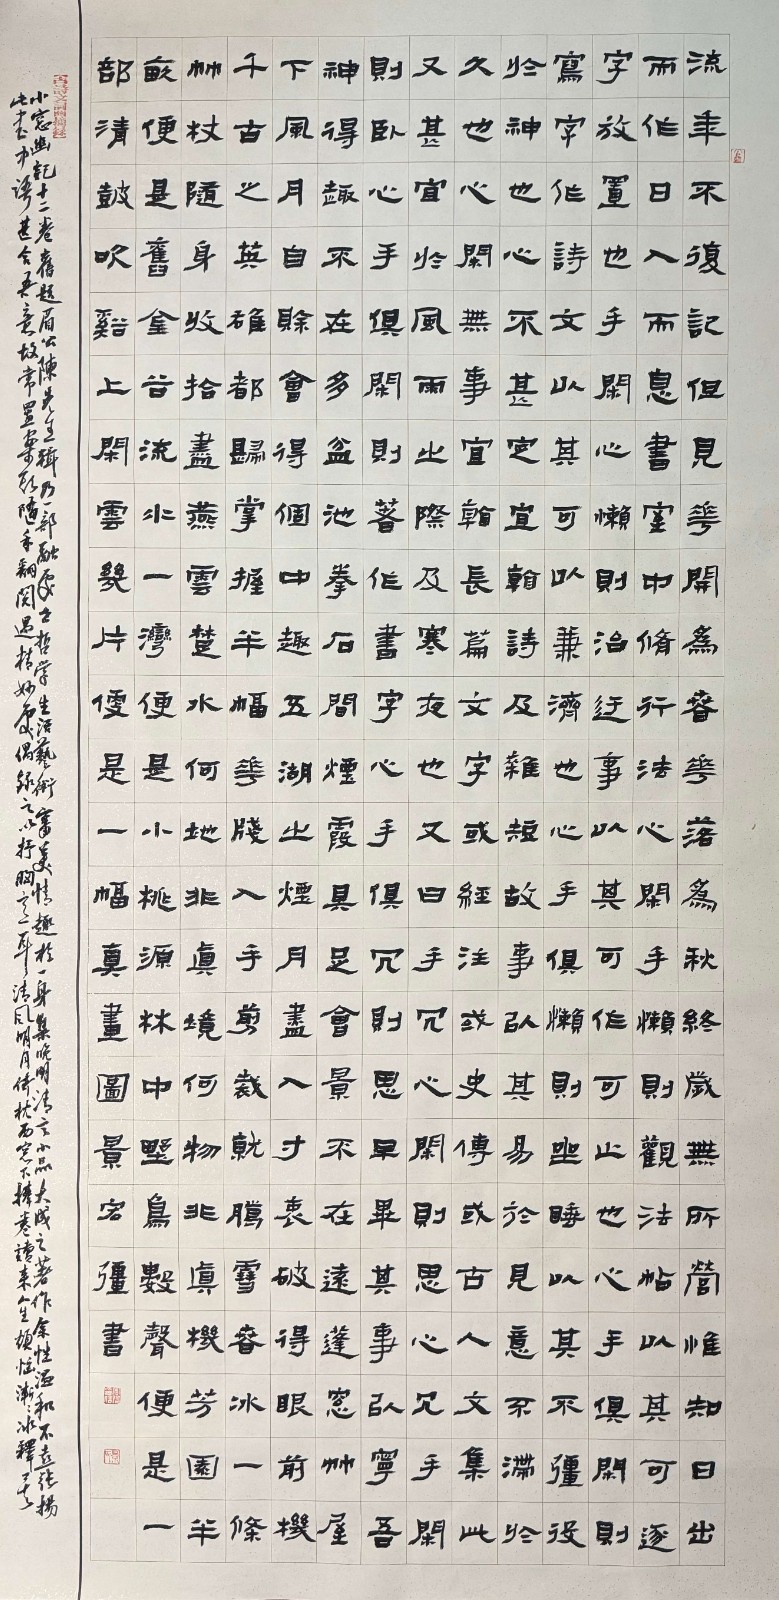 流年不復記但見華開為春華落為秋終歲無所營惟知日出
而作日入而息書室中脩行法心閑手懶則觀法帖以其可逐
字放置也手閑心懶則治迂事以其可作可止也心手俱閑則
寫字作詩文以其可以兼濟也心手俱懶則坐睡以其不彊役
於神也心不甚定宜翰詩及雜短故事以其易於見意不滯於
久也心閑無事宜翰長篇文字或經注或史傳或古人文集此
又甚宜於風雨之際及寒夜也又曰手冗心閑則思心冗手閑
則臥心手俱閑則著作書字心手俱冗則思早畢其事以寧吾
神得趣不在多盆池拳石間煙霞具足會景不在遠蓬窓艸屋
下風月自賒會得個中趣五湖之煙月盡入寸衷破得眼前機
千古之英雄都歸掌握半幅華牋入手剪裁就騰雪春冰一條
竹杖隨身收拾盡燕雲楚水何地非真境何物非真機芳園半
畝便是舊金谷流水一灣便是小桃源林中野鳥數聲便是一
部清鼓吹谿上閑雲幾片便是一幅真畫圖景宏彊書
小窓幽記十二卷舊題眉公陳先生輯乃一部融處士哲學生活藝術審美情趣於一身集晚明清言小品大成之著作余性溫和不喜張揚
此書才語甚合吾意故常置案頭隨手翻閱遇精妙處偶錄之以抒胸意耳清風明月倚枕西窓下橫卷讀來人生頓漸冰釋